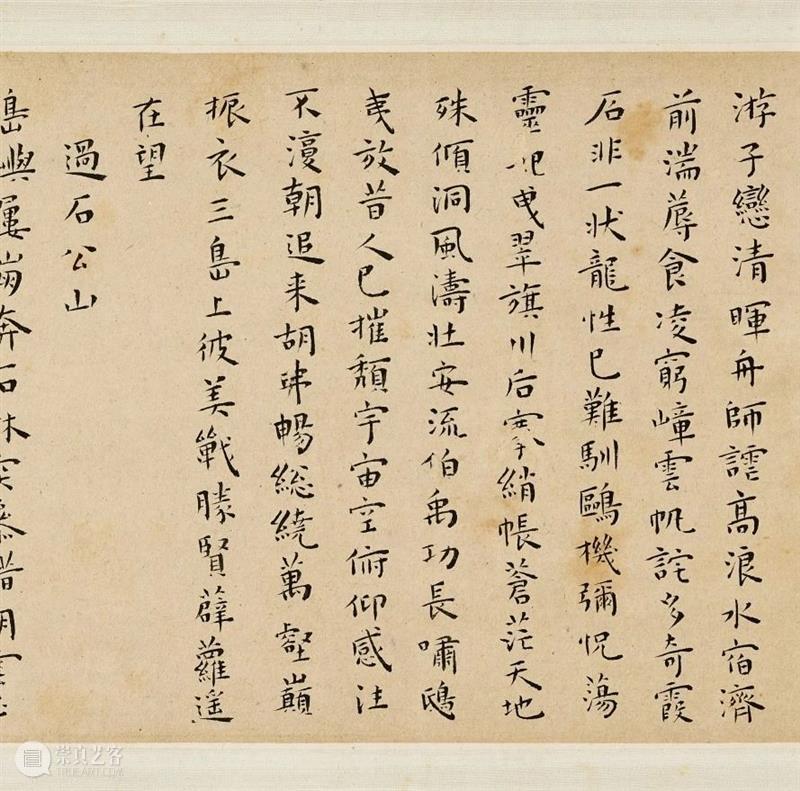 游子戀清暉舟師謔高浪水宿濟
前湍蓐食凌窮嶂雲帆詫多奇霞
石非一狀龍性已難馴鷗機彌怳蕩
靈妃曳翠旗川后搴綃帳蒼茫天地
殊傾洞風濤壯安流伯禹功長嘯鴟
夷放昔人已摧頹宇宙空俯仰感往
不復朝追来胡弗暢総繞萬壑巔
振衣三島上彼美戰勝賢薜蘿遥
在望
過石公山
島嶼屢崩奔石林突
崇真艺客
TRUEART.COM